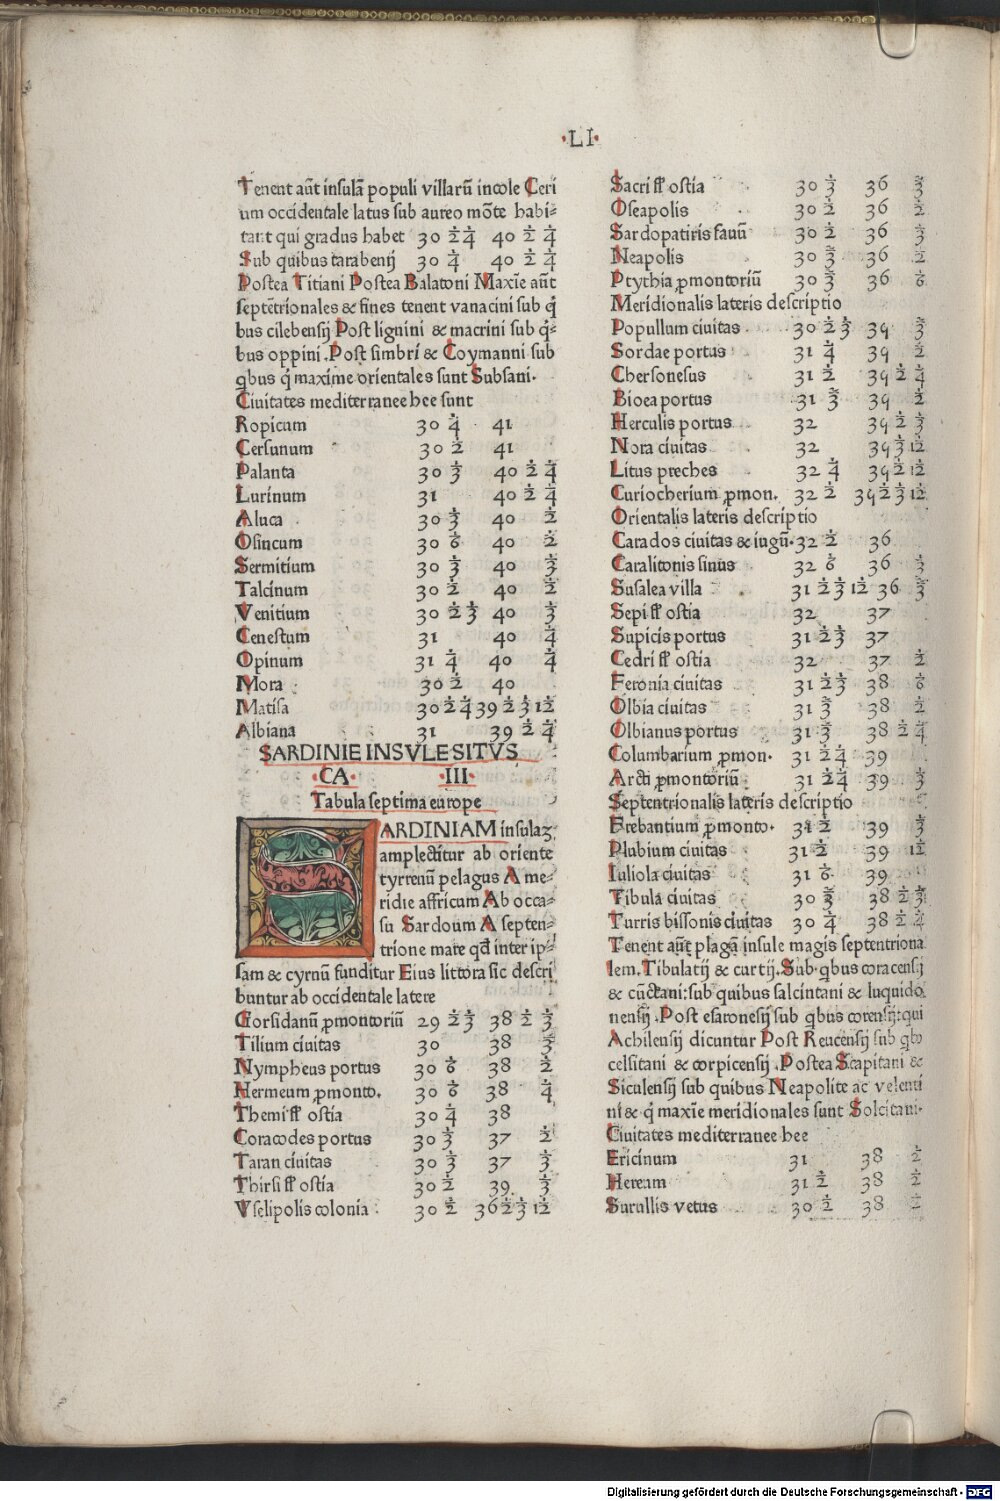 ·LI·
Tenent aūt insulā populi villarū incole Ceri
um occidentale latus sub aureo mōte habi-
tant qui gradus habet 30 ½ ¼ 40 ½ ¼
Sub quibus tarabenij 30 ¼ 40 ½ ¼
Postea Titiani Postea Balatoni Maxīe aūt
septētrionales & fines tenent vanacini sub q̄
bus cilebensij Post lignini & macrini sub q̄-
bus oppini. Post simbri & Coymanni sub
qbus q̄ maxime orientales sunt Subsani.
Ciuitates mediterranee hee sunt
Ropicum 30 ¼ 41
Cersunum 30 ½ 41
Palanta 30 ⅓ 40 ½ ¼
Lurinum 31 40 ½ ¼
Aluca 30 ⅓ 40 ½
Osincum 30 ⅙ 40 ½
Sermitium 30 ⅓ 40 ⅓
Talcinum 30 ½ 40 ½
Venitium 30 ½ ⅓ 40 ⅓
Cenestum 31 40 ¼
Opinum 31 ¼ 40 ¼
Mora 30 ½ 40
Matisa 30 ½ ¼ 39 ½ ⅓ 1/12
Albiana 31 39 ½ ¼
SARDINIE INSVLE SITVS
·CA· ·III·
Tabula septima europe
SARDINIAM insulaꝫ
amplectitur ab oriente
tyrrenū pelagus A me-
ridie affricum Ab occa-
su Sardoum A septen-
trione mare qd̄ inter ip-
sam & cyrnū funditur Eius littora sic descri
buntur ab occidentale latere
Gorsidanū ꝓmontoriū 29 ½ ⅓ 38 ½ ⅓
Tilium ciuitas 30 38 ⅓
Nympheus portus 30 ⅙ 38 ½
Hermeum ꝓmonto. 30 ⅙ 38 ¼
Themi fl̄ ostia 30 ¼ 38
Coracodes portus 30 ⅓ 37 ½
Taran ciuitas 30 ⅓ 37 ⅓
Thirsi fl̄ ostia 30 ½ 39 ⅓
Vselipolis colonia 30 ½ 36 ½ ⅓ 1/12
Sacri fl̄ ostia 30 ⅓ 36 ⅓
Oseapolis 30 ½ 36 ½
Sardopatiris fanū 30 ½ 36 ⅓
Neapolis 30 ⅓ 36 ½
Ptythia ꝓmontoriū 30 ⅓ 36 ⅙
Meridionalis lateris descriptio
Popullum ciuitas 30 ½ ⅓ 39 ⅓
Sordae portus 31 ¼ 39 ½
Chersonesus 31 ½ 39 ½ ¼
Bioea portus 31 ⅓ 39 ½
Herculis portus 32 39 ½ ⅓
Nora ciuitas 32 39 ⅓ 1/12
Litus preches 32 ¼ 39 ½ 1/12
Curiocherium ꝓmon. 32 ½ 39 ½ ⅓ 1/12
Orientalis lateris descriptio
Carados ciuitas & iugū. 32 ½ 36
Caralitonis sinus 32 ⅙ 36 ⅓
Susalea villa 31 ½ ⅓ 1/12 36 ⅓
Sepi fl̄ ostia 32 37
Supicis portus 31 ½ ⅓ 37
Cedri fl̄ ostia 32 37 ½
Feronia ciuitas 31 ½ ⅓ 38 ⅙
Olbia ciuitas 31 ⅓ 38 ½
Olbianus portus 31 ⅓ 38 ½ ¼
Columbarium ꝓmon. 31 ½ ¼ 39
Arcti ꝓmontoriū 31 ½ ¼ 39 ⅓
Septentrionalis lateris descriptio
Erebantium ꝓmonto. 31 ½ 39 ⅓
Plubium ciuitas 31 ½ 39 1/12
Iuliola ciuitas 31 ⅙ 39
Tibula ciuitas 30 ⅓ 38 ½ ⅓
Turris bissonis ciuitas 30 ¼ 38 ½ ¼
Tenent aūt plagā insule magis septentriona
lem. Tibulatij & curtij. Sub qbus coracensij
& cūctani: sub quibus salcintani & luquido
nensij. Post esaronesij sub qbus corensij: qui
Achilensij dicuntur Post Reucensij sub qb
celsitani & corpicensij. Postea Scapitani &
Siculensij sub quibus Neapolite ac velenti
ni & q̄ maxīe meridionales sunt Solcitani.
Ciuitates mediterranee hee
Ericinum 31 38 ½
Heream 31 ½ 38 ½
Surullis vetus 30 ½ 38 ½
Digitalisierung gefördert durch die Deutsche Forschungsgemeinschaft - DFG